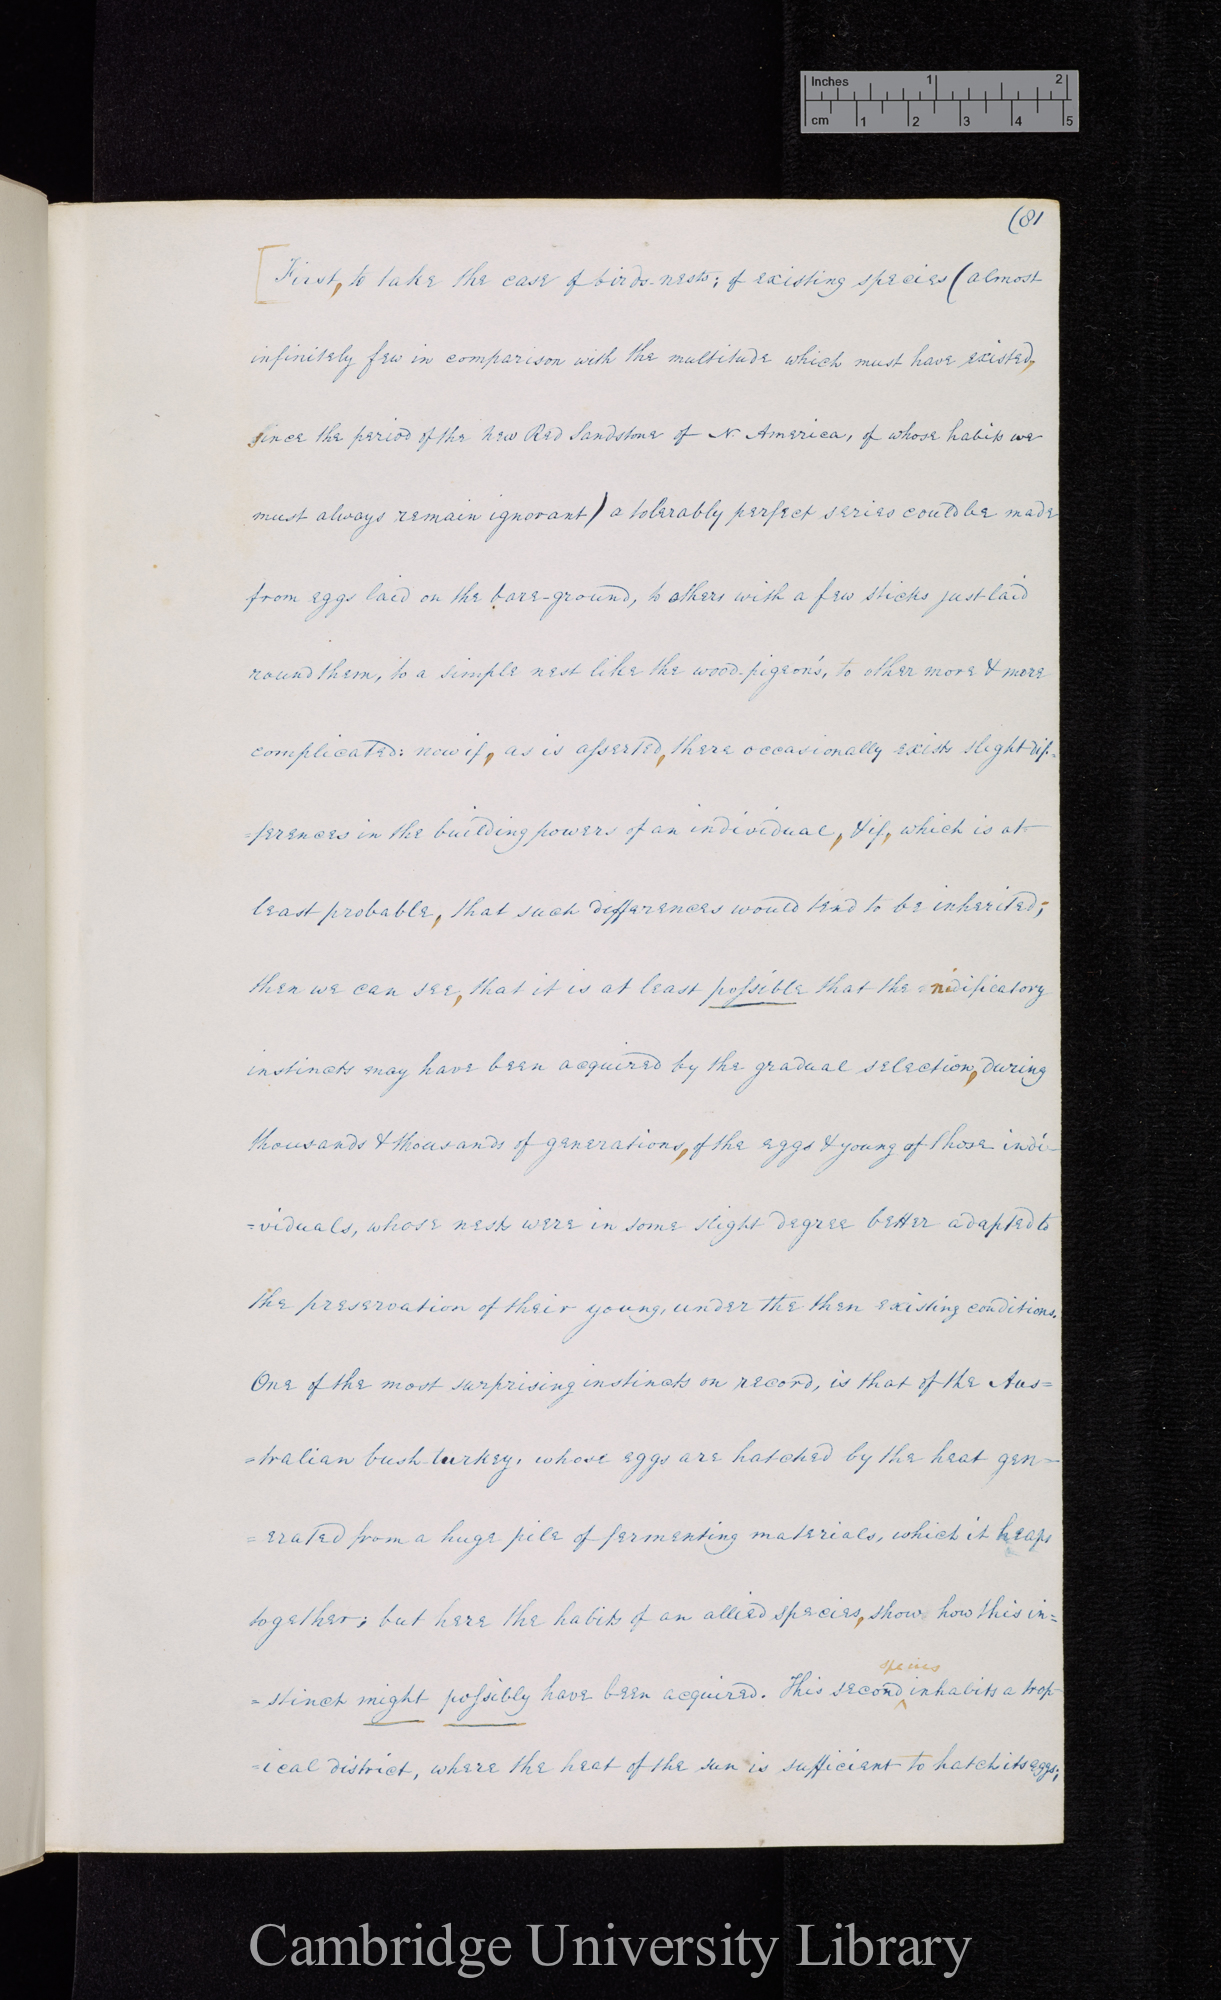 Inches 1 2
cm 1 2 3 4 5
(81
[First, to take the case of birds-nests; of existing species (almost
infinitely few in comparison with the multitude which must have existed,
since the period of the new Red Sandstone of N. America, of whose habits we
must always remain ignorant) a tolerably perfect series could be made
from eggs laid on the bare-ground, to others with a few sticks just laid
round them, to a simple nest like the wood-pigeon's, to other more & more
complicated: now if, as is asserted, there occasionally exists slight dif-
=ferences in the building powers of an individual, & if, which is at-
least probable, that such differences would tend to be inherited;
then we can see, that it is at least possible that the nidificatory
instincts may have been acquired by the gradual selection, during
thousands & thousands of generations, of the eggs & young of those indi-
=viduals, whose nests were in some slight degree better adapted to
the preservation of their young, under the then existing conditions.
One of the most surprising instincts on record, is that of the Aus=
=tralian bush-turkey, whose eggs are hatched by the heat gen=
=erated from a huge pile of fermenting materials, which it heaps
together; but here the habits of an allied species, show how this in=
species
=stinct might possibly have been acquired. This second ^ inhabits a trop
=ical district, where the heat of the sun is sufficient to hatch its eggs;
Cambridge University Library